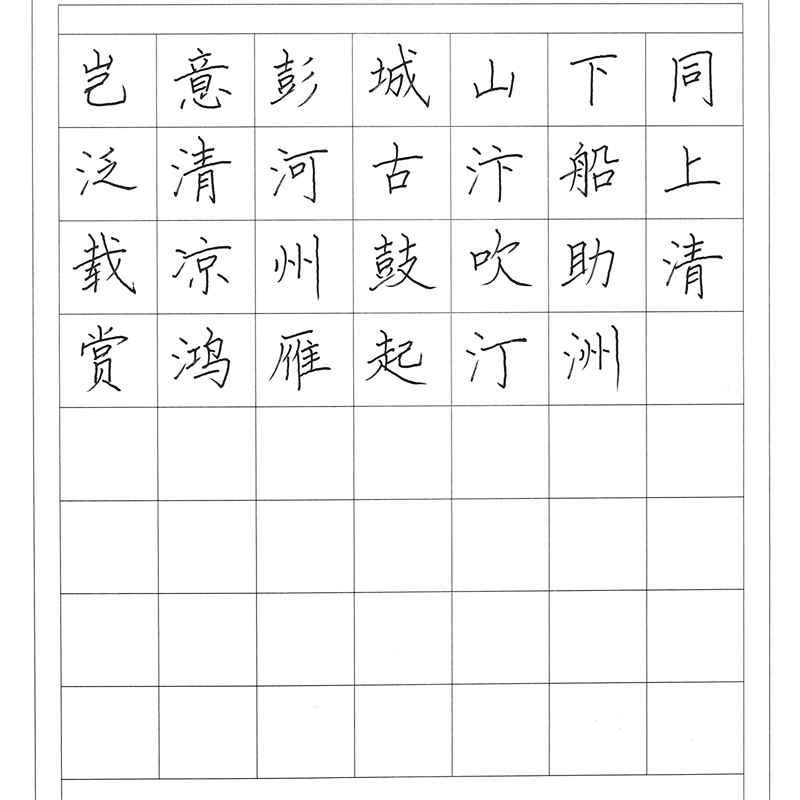 岂意彭城山下同
泛清河古汴船上
载凉州鼓吹助清
赏鸿雁起汀洲